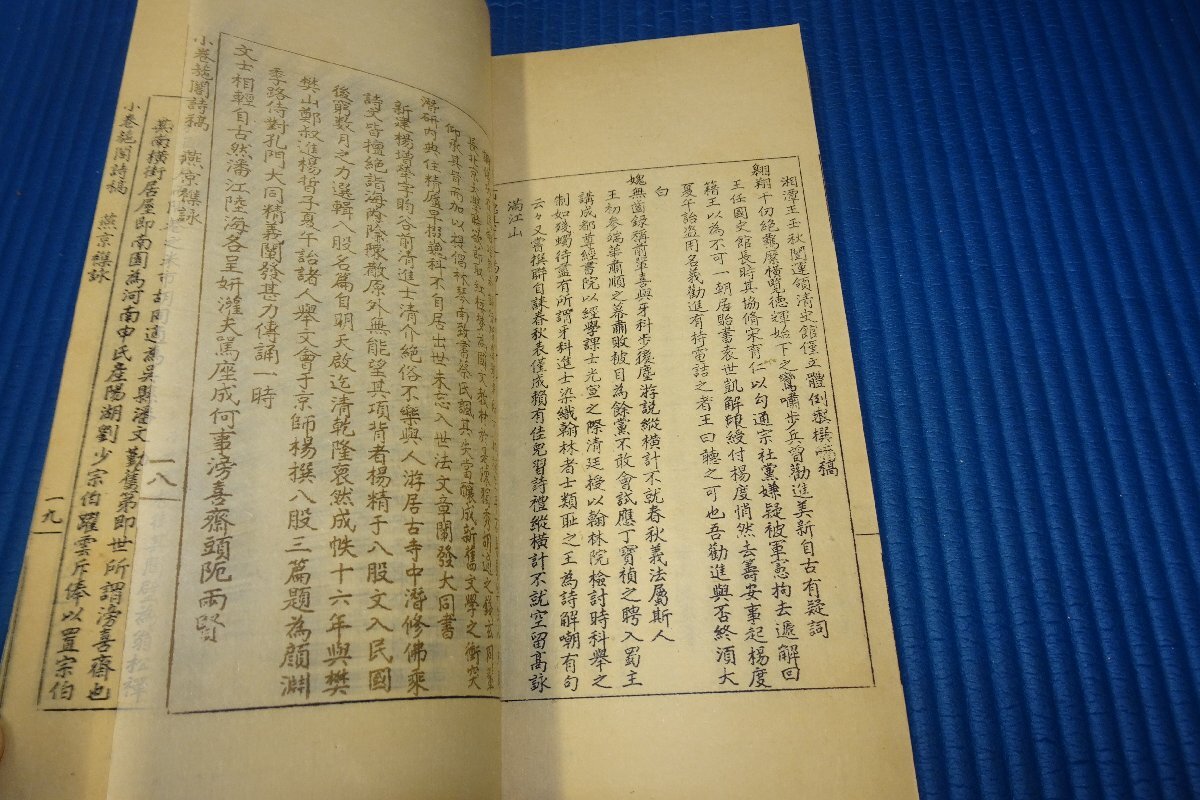 湘潭王壬秋闓運領清史館僅立體例製撰時稿
翱翔十仞絕驚塵橫覽德輝始下之鸞嘯步兵曾勸進美新自古有疑詞
王任國史館長時其協修宋育仁以勾通宗社黨嫌疑被軍憲拘去遞解回
籍王以為不可一朝居貽書袁世凱解印綬付楊度悄然去籌安事起楊度
夏午詒盜用名義勸進有持電詰之者王曰聽之可也吾勸進與否終須大
白
媿無國錄稱前輩喜與牙科步後塵游說縱橫計不就春秋義法屬斯人
王初參端華肅順之幕肅敗被目為餘黨不敢會試應丁寶楨之聘入蜀主
講成都尊經書院以經學課士光宣之際清廷授以翰林院檢討時科舉之
制如殘燭待盡有所謂牙科進士染織翰林者士類恥之王為詩解嘲有句
云々又嘗撰聯自誄春秋表僅成賴有佳兒習詩禮縱橫計不就空留高詠
滿江山
潛研內典住精廬早掇巍科不自居出世未忘入世法文章闡發大同書
新建楊增犖字昀谷前清進士清介絕俗不樂與人游居古寺中潛修佛乘
詩文皆擅絕詣海內除陳散原外無能望其項背者楊精于八股文入民國
後窮數月之力選輯八股名篇自明天啟迄清乾隆裒然成帙十六年與樊
樊山鄭叔進楊哲子夏午詒諸人舉文會于京師楊撰八股三篇題為顏淵
季路侍對孔門大同精義闡發甚力傳誦一時
文士相輕自古然潘江陸海各呈妍灌夫罵座成何事滂喜齋頭阨兩賢
小卷葹閣詩稿 燕京襍詠
一八
其南橫街居屋即南園為河南申氏產陽湖劉少宗伯躍雲斥俸以置宗伯
小卷葹閣詩稿 燕京襍詠
一九